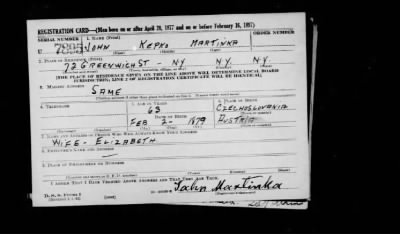 REGISTRATION CARD—(Men born on or after April 28, 1877 and on or before February 16, 1897)
SERIAL NUMBER 1. NAME (Print) ORDER NUMBER
U 7895 JOHN KEPKO MARTINKA
(First) (Middle) (Last)
2. PLACE OF RESIDENCE (Print)
72 GREENWICH ST - N.Y. N.Y. N.Y.
(Number and street) (Town, township, village, or city) (County) (State)
[THE PLACE OF RESIDENCE GIVEN ON THE LINE ABOVE WILL DETERMINE LOCAL BOARD
JURISDICTION; LINE 2 OF REGISTRATION CERTIFICATE WILL BE IDENTICAL]
3. MAILING ADDRESS
SAME
4. TELEPHONE 5. AGE IN YEARS 6. PLACE OF BIRTH
63 CZECHOSLOVAKIA
DATE OF BIRTH
FEB 2- 1879 AUSTRIA
7. NAME AND ADDRESS OF PERSON WHO WILL ALWAYS KNOW YOUR ADDRESS
WIFE - ELIZABETH
8. EMPLOYER'S NAME AND ADDRESS
9. PLACE OF EMPLOYMENT OR BUSINESS
I AFFIRM THAT I HAVE VERIFIED ABOVE ANSWERS AND THAT THEY ARE TRUE.
D. S. S. Form 1
John Martinka